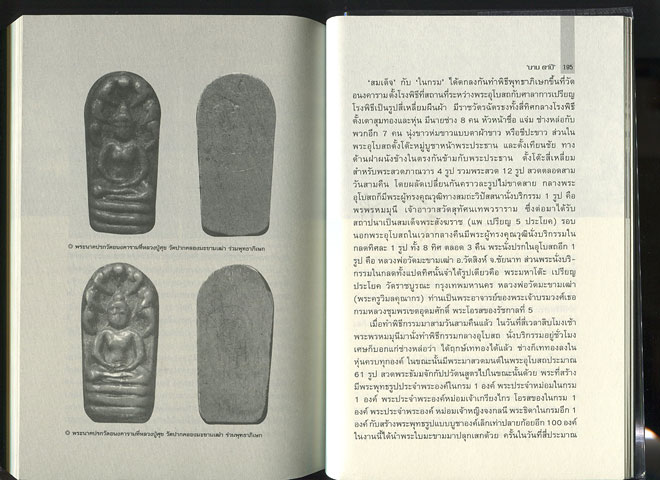 ⊙ พระนาคปรกวัดอนงคารามที่หลวงปู่ศุข วัดปากคลองมะขามเฒ่า ร่วมพุทธาภิเษก
⊙ พระนาคปรกวัดอนงคารามที่หลวงปู่ศุข วัดปากคลองมะขามเฒ่า ร่วมพุทธาภิเษก
195
"สมเด็จ" กับ "ในกรม" ได้ตกลงกันทำพิธีพุทธาภิเษกขึ้นที่วัด
อนงคาราม ตั้งโรงพิธีที่สถานที่ระหว่างพระอุโบสถกับศาลาการเปรียญ
โรงพิธีเป็นรูปสี่เหลี่ยมผืนผ้า มีราชวัตรฉัตรธงทั้งสี่ทิศกลางโรงพิธี
ตั้งเตาสุมทองและหุ่น มีนายช่าง 8 คน หัวหน้าชื่อ แจ่ม ช่างหล่อกับ
พวกอีก 7 คน นุ่งขาวห่มขาวแบบตาผ้าขาว หรือชีปะขาว ส่วนใน
พระอุโบสถตั้งโต๊ะหมู่บูชาหน้าพระประธาน และตั้งเทียนชัย ทาง
ด้านฝาผนังข้างในตรงกันข้ามกับพระประธาน ตั้งโต๊ะสี่เหลี่ยม
สำหรับพระสวดภาณวาร 4 รูป รวมพระสวด 12 รูป สวดตลอดสาม
วันสามคืน โดยผลัดเปลี่ยนกันคราวละรูปไม่ขาดสาย กลางพระ
อุโบสถก็มีพระผู้ทรงคุณวุฒิทางสมถะวิปัสสนานั่งบริกรรม 1 รูป คือ
พรพรหมมุนี เจ้าอาวาสวัดสุทัศนเทพวราราม ซึ่งต่อมาได้รับ
สถาปนาเป็นสมเด็จพระสังฆราช (แพ เปรียญ 5 ประโยค) รอบ
นอกพระอุโบสถในเวลากลางคืนมีพระผู้ทรงคุณวุฒินั่งบริกรรมใน
กลดทิศละ 1 รูป ทั้ง 8 ทิศ ตลอด 3 คืน พระนั่งปรกในอุโบสถอีก 1
รูป คือ หลวงพ่อวัดมะขามเฒ่า อ.วัดสิงห์ จ.ชัยนาท ส่วนพระนั่งบริ-
กรรมในกลดทั้งแปดทิศนั้นจำได้รูปเดียวคือ พระมหาโต๊ะ เปรียญ
ประโยค วัดราชบูรณะ กรุงเทพมหานคร หลวงพ่อวัดมะขามเฒ่า
(พระครูวิมลคุณากร) ท่านเป็นพระอาจารย์ของพระเจ้าบรมวงศ์เธอ
กรมหลวงชุมพรเขตอุดมศักดิ์ พระโอรสของรัชกาลที่ 5
เมื่อทำพิธีกรรมมาสามวันสามคืนแล้ว ในวันที่สี่เวลาสิบโมงเช้า
พระพรหมมุนีมานั่งทำพิธีกรรมกลางอุโบสถ นั่งบริกรรมอยู่ชั่วโมง
เศษก็บอกแก่ช่างหล่อว่า ได้ฤกษ์เททองได้แล้ว ช่างก็เททองลงใน
หุ่นครบทุกองค์ ในขณะนั้นมีพระมาสวดมนต์ในพระอุโบสถประมาณ
61 รูป สวดพระธัมมจักกัปปวัตนสูตรไปในขณะนั้นด้วย พระที่สร้าง
มีพระพุทธรูปประจำพระองค์ในกรม 1 องค์ พระประจำหม่อมในกรม
1 องค์ พระประจำพระองค์หม่อมเจ้าเกรียงไกร โอรสของในกรม 1
องค์ พระประจำพระองค์ หม่อมเจ้าหญิงจงกลนี พระธิดาในกรมอีก 1
องค์ กับสร้างพระพุทธรูปแบบบูชาองค์เล็กเท่าปลายก้อยอีก 100 องค์
ในงานนี้ได้นำพระใบมะขามมาปลุกเสกด้วย ครั้นในวันที่สี่ประมาณ